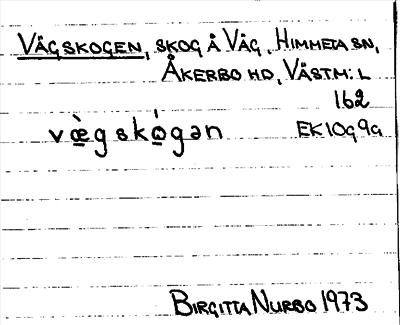 VÄGSKOGEN, SKOG Å VÄG, HIMMETA SN,
ÅKERBO HD, VÄSTM:L
162
væ̀gskógən EK10g9a
BIRGITTA NURBO 1973